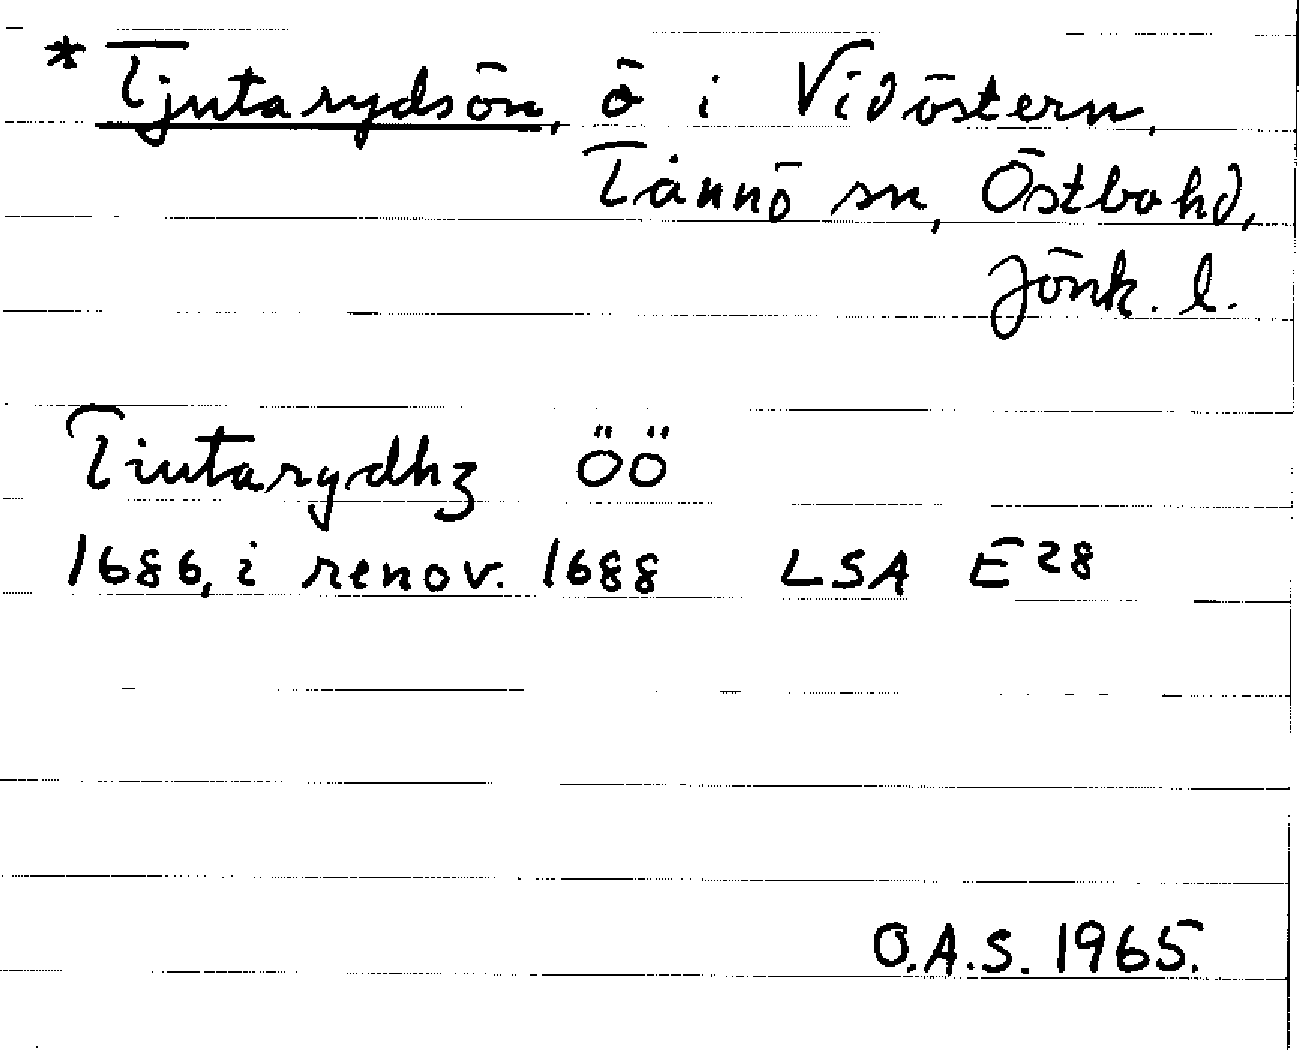 * Tjutarydsön, ö i Vidöstern,
Tånnö sn, Östbo hd,
Jönk. l.
Tiutarydhz ÖÖ
1686, i renov. 1688 LSA E 28
O.A.S. 1965.